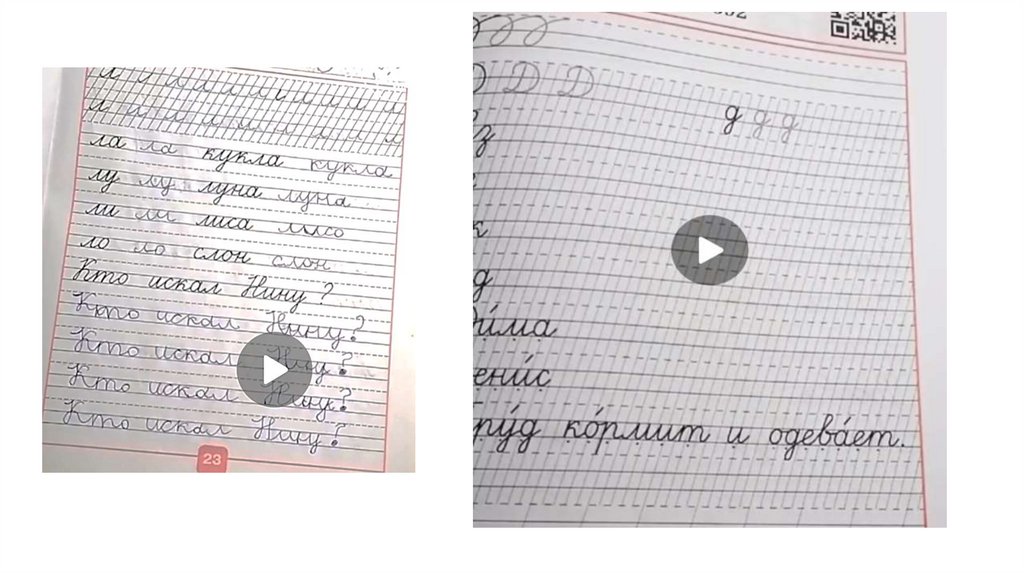 ла ла кукла кукла
лу лу луна луна
ли ли лиса лисо
ло ло слон слон
Кто искал Нину?
Кто искал Нину?
Кто искал Нину?
Кто искал Нину?
Кто искал Нину?
23
Д Д
д д д
з
к
д
и́ма
ени́с
ру́д ко́рмит и одева́ет.